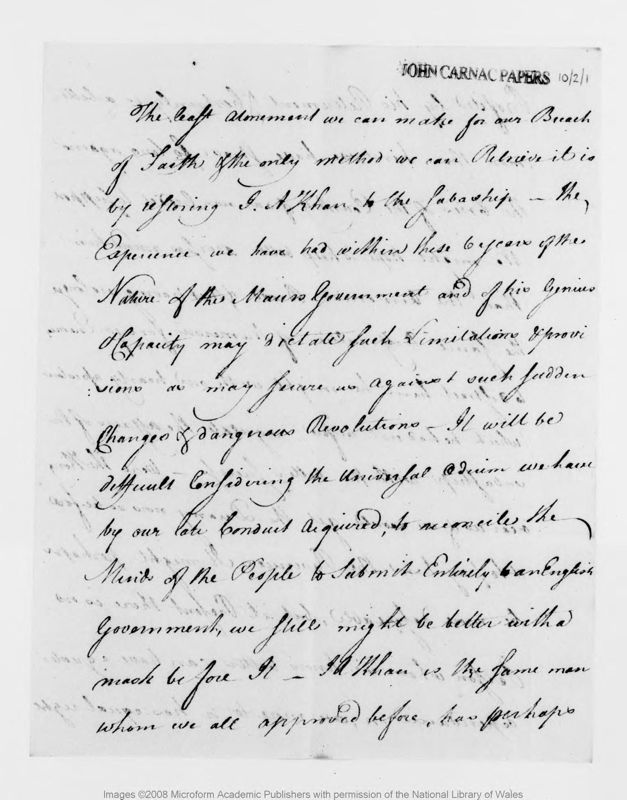 JOHN CARNAC PAPERS 10/2/1
The least atonement we can make for our Breach
of Faith & the only method we can Retrieve it is
by restoring J. A Khan to the Subaship – the
Experience we have had within these 6 years of the
Nature of the Moors Government and of his Genius
& Capacity may dictate such Limitations & provi
:sions as may secure us against such sudden
Changes & dangerous Revolutions – It will be
difficult Considering the Universal Odium we have
by our late Conduct Acquired, to reconcile the
Minds of the People to Submit Entirely to an English
Government, we still might be better with a
mask before It – J A Khan is the same man
whom we all approved before, has perhaps
Images ©2008 Microform Academic Publishers with permission of the National Library of Wales